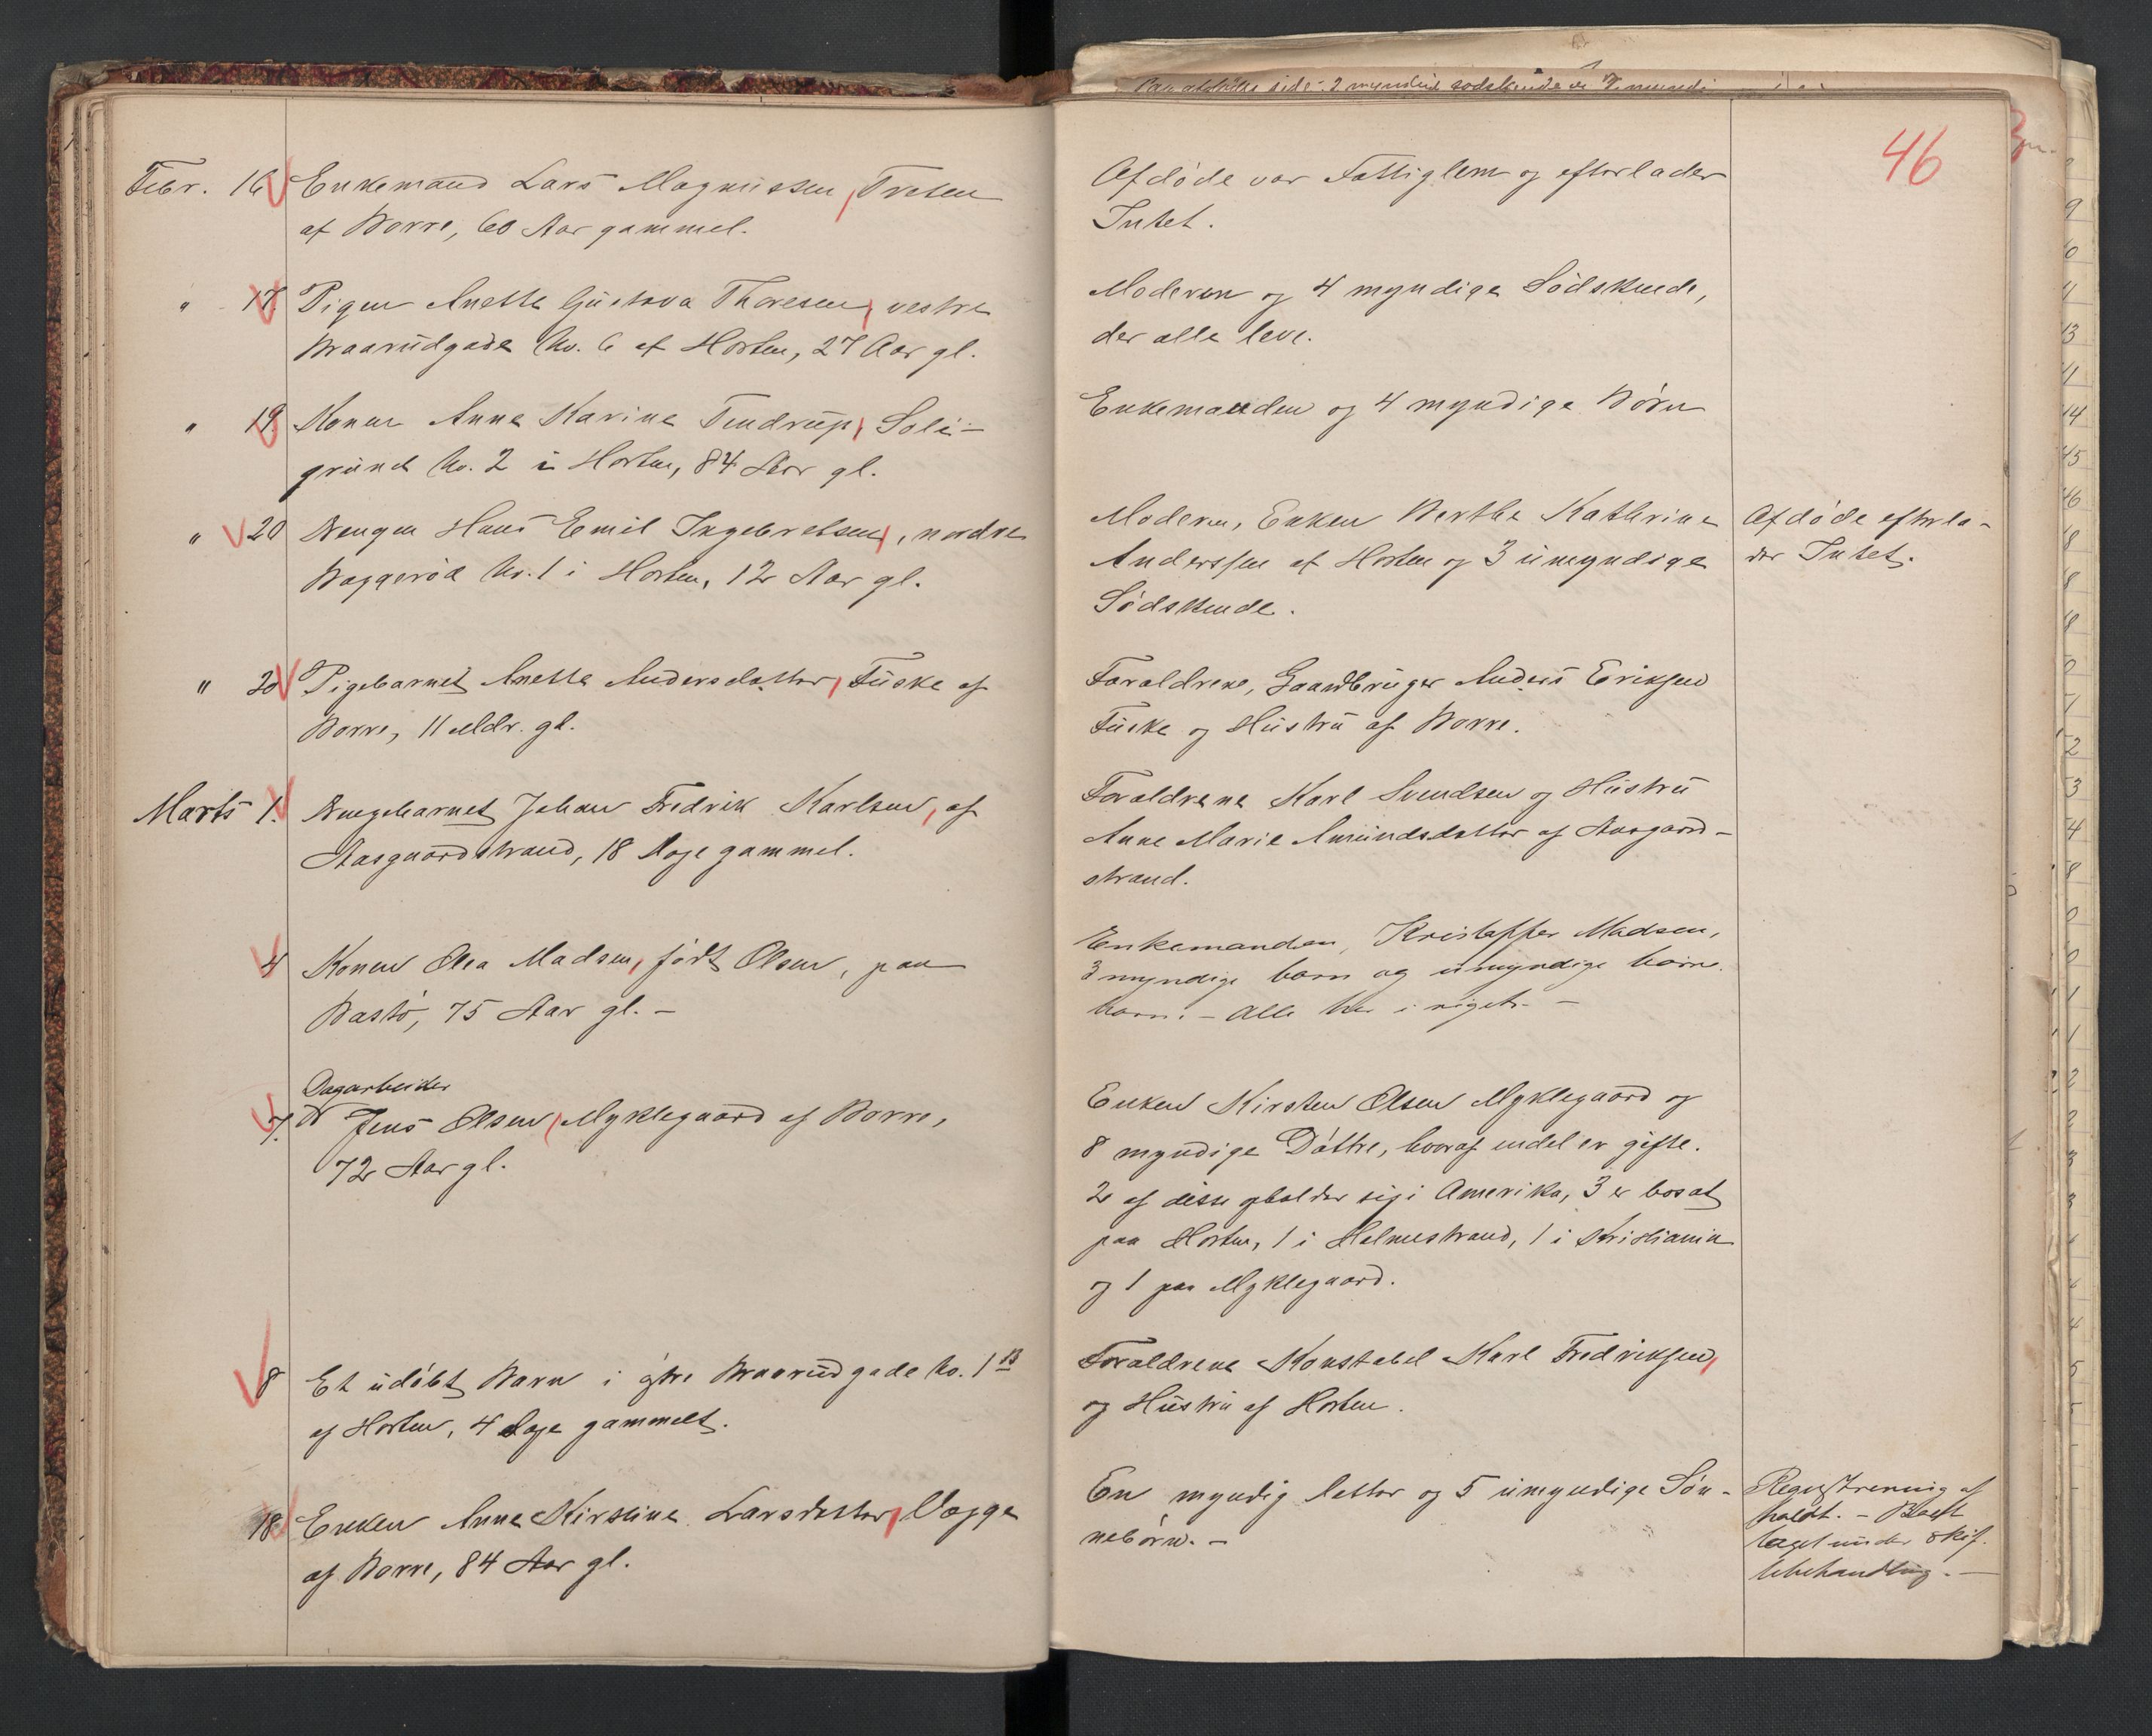 46
Febr. 16 Enkemand Lars Magnussen, Tveten
af Borre, 60 Aar gammel.
Afdøde var Fattiglem og efterlader
Intet.
" 17. Pigen Anette Gustava Thoresen, vestre
Braarudgade No. 6 af Horten, 27 Aar gl.
Moderen og 4 myndige Sødskende,
der alle leve.
" 19. Konen Anne Karine Tendrup, Soli-
grund No. 2 i Horten, 84 Aar gl.
Enkemanden og 4 myndige Børn
" 20 Drengen Hans Emil Ingebretsen, nordre
Baggerød No. 1 i Horten, 12 Aar gl.
Moderen, Enken Berthe Kathrine
Anderssen af Horten og 3 umyndige
Sødskende.
Afdøde efterla-
der Intet.
" 20 Pigebarnet Anette Andersdatter, Fuske af
Borre, 11 Mdr. gl.
Forældrene, Gaardbruger Anders Eriksen
Fuske og Hustru af Borre.
Marts 1. Drengebarnet Johan Fredrik Karlsen, af
Aasgaardstrand, 18 Dage gammel.
Forældrene Karl Svendsen og Hustru
Anne Marie Amundsdatter af Aasgaard-
strand.
4 Konen Olea Madsen, født Olsen, paa
Bastø, 75 Aar gl. -
Enkemanden, Kristoffer Madsen,
3 myndige børn og umyndige børne-
børn. - Alle her i riget. -
Dagarbeider
7. Jens Olsen, Myklegaard af Borre,
72 Aar gl.
Enken Kirsten Olsen Myklegaard og
8 myndige Døttre, hvoraf endel er gifte.
2 af disse opholder sig i Amerika, 3 er bosat
paa Horten, 1 i Holmestrand, 1 i Kristiania
og 1 paa Myklegaard.
8 Et udøbt Barn i østre Braarudgade No. 1 B
af Horten, 4 Dage gammelt.
Forældrene Konstabel Karl Fredriksen,
og Hustru af Horten.
18. Enken Anne Kirstine Larsdatter, Vægge
af Borre, 84 Aar gl.
En myndig Datter og 5 umyndige Søn-
nebørn. -
Registrering af
holdt. - Boet
taget under skif-
tebehandling. -